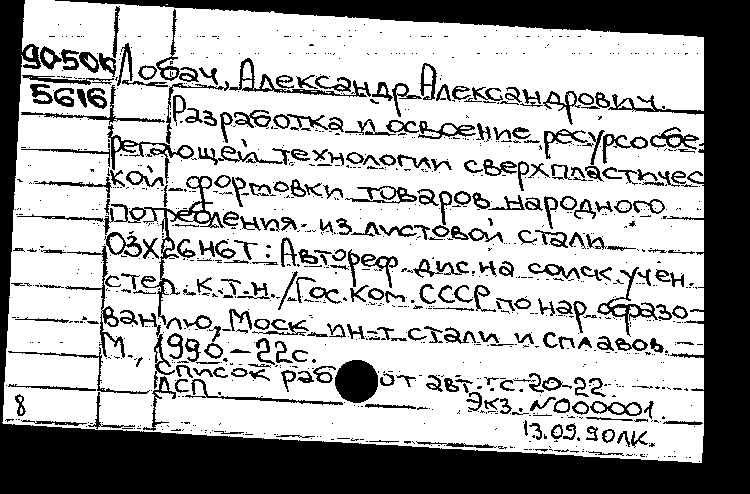 90-50к Лобач, Александр Александрович.
5616 Разработка и освоение ресурсосбе-
регающей технологии сверхпластичес
кой формовки товаров народного
потребления из листовой стали
03Х26Н6Т: Автореф. дис. на соиск. учен.
степ. к.т.н. / Гос. ком. СССР по нар. образо-
ванию, Моск. ин-т стали и сплавов. –
М., 1990. – 22 с.
Список работ авт.: с. 20-22.
ДСП. Экз. N000001.
8 13.09.90 ЛК.